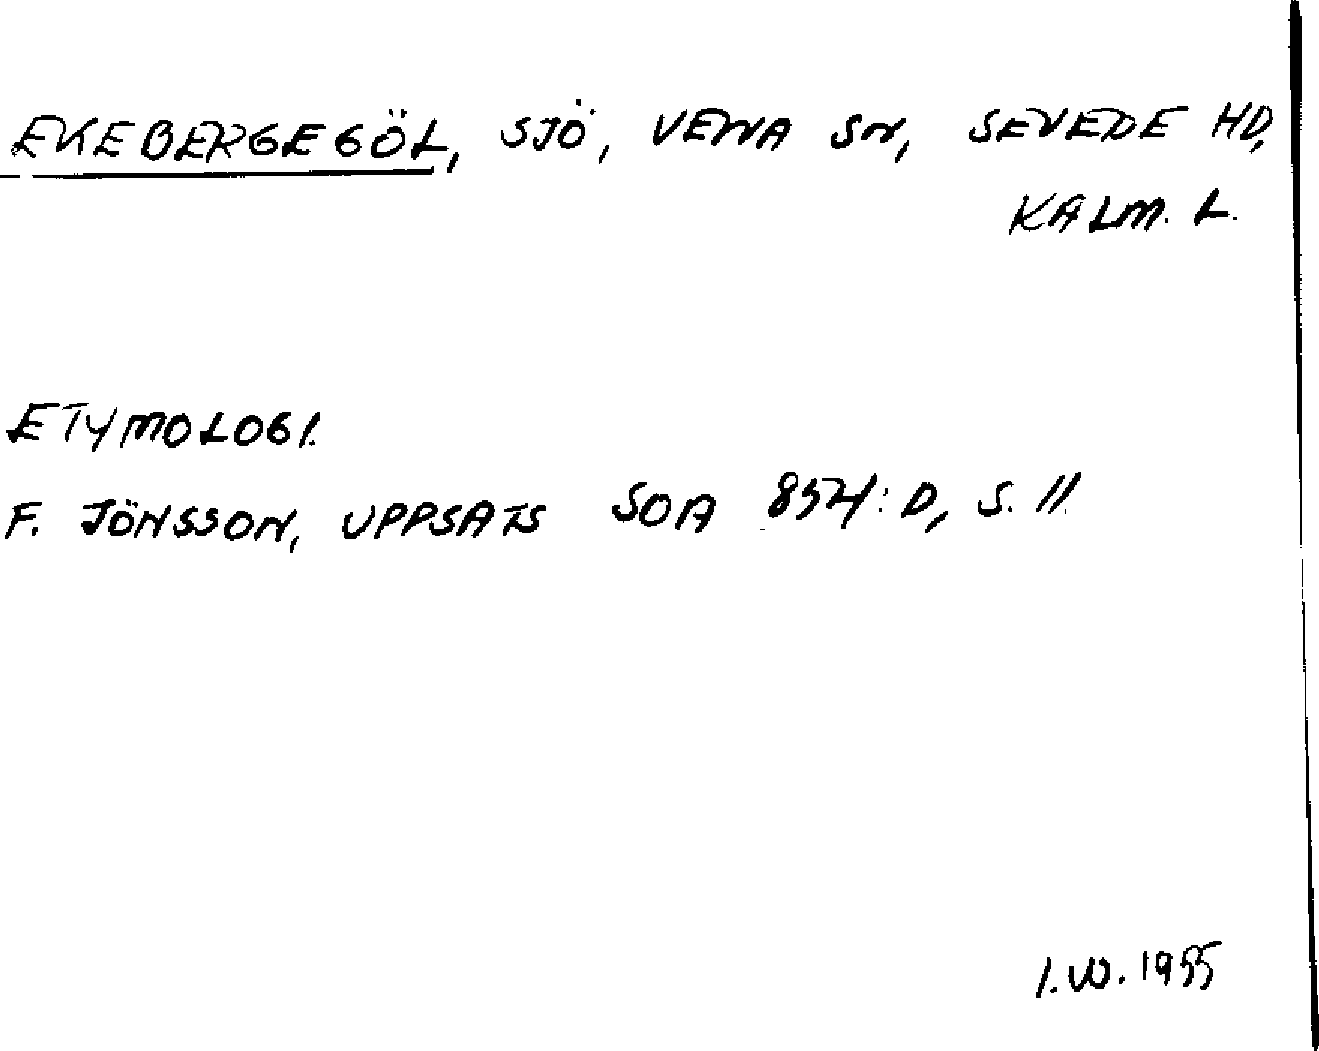 EKEBERGEGÖL, SJÖ, VENA SN, SEVEDE HD,
KALM. L.
ETYMOLOGI.
F. JÖNSSON, UPPSATS SOA D, S. 11.
I.W. 1955